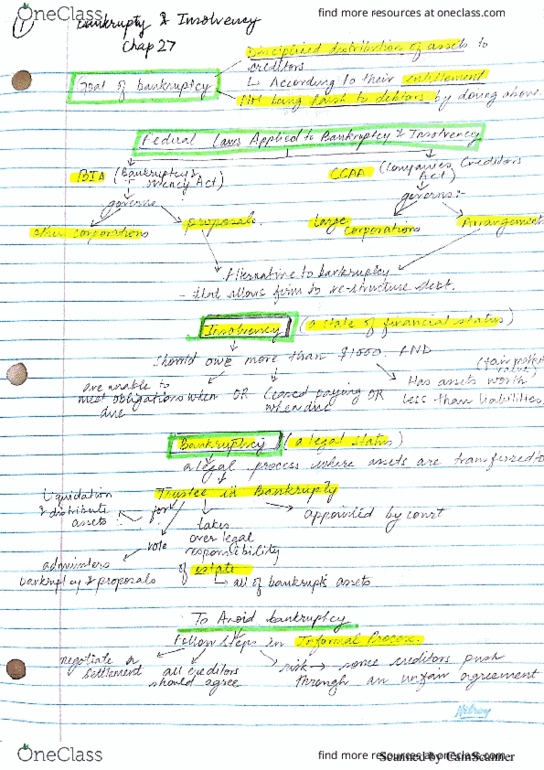 OneClass
find more resources at oneclass.com
① Bankruptcy & Insolvency
Chap 27
Disciplined distribution of assets to
creditors
↳ According to their entitlement
Goal of bankruptcy
Not being harsh to debtors by doing above.
Federal Laws Applied to Bankruptcy & Insolvency
BIA (Bankruptcy & Insolvency Act)
CCAA (Companies Creditors
Act)
governs
governs:-
other corporations
proposals.
large
corporations
Arrangement
Alternative to bankruptcy
- that allows firm to re-structure debt.
Insolvency (a state of financial status)
Should owe more than $1000. AND
are unable to
meet obligations when
due
OR
Ceased paying
when due
OR
Has assets worth
less than liabilities.
Bankruptcy (a legal status)
a legal process where assets are transferred to
Trustee in Bankruptcy
Liquidation
& distribute
assets
for
role
takes
over legal
responsibility
appointed by court
administers
bankruptcy & proposals
of estate
↳ all of bankrupt's assets
To Avoid bankruptcy
Follow steps in Informal Process.
negotiate a
settlement
all creditors
should agree
risk → some creditors push
through an unfair agreement
OneClass
find more resources at oneclass.com
Scanned by CamScanner